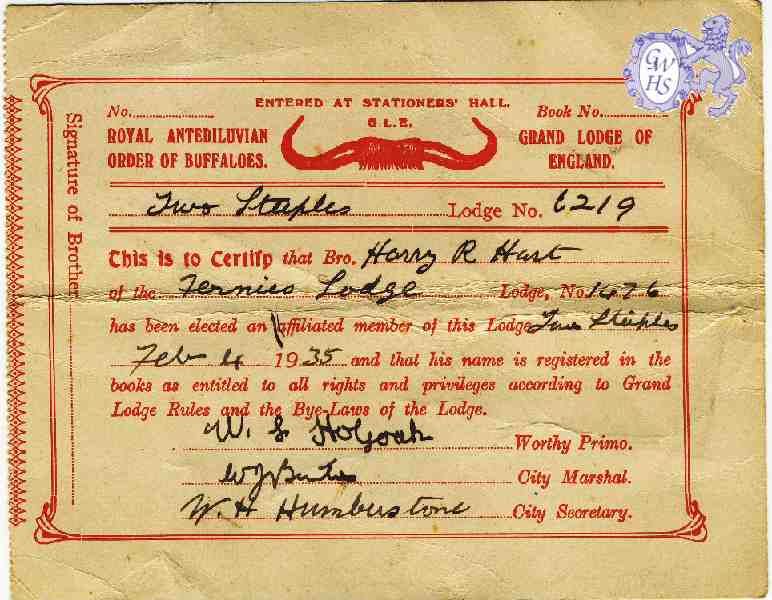 GWHS
ENTERED AT STATIONERS' HALL.
No. Book No.
G.L.E.
ROYAL ANTEDILUVIAN ORDER OF BUFFALOES.
GRAND LODGE OF ENGLAND.
Two Steeples Lodge No. 6219
This is to Certify that Bro. Harry R Hart
of the Lodge Lodge, No. 1476
has been elected an affiliated member of this Lodge Two Steeples
Feb 4 1935 and that his name is registered in the
books as entitled to all rights and privileges according to Grand
Lodge Rules and the Bye-Laws of the Lodge.
W. Holyoak Worthy Primo.
City Marshal.
W. H Humberstone City Secretary.
Signature of Brother